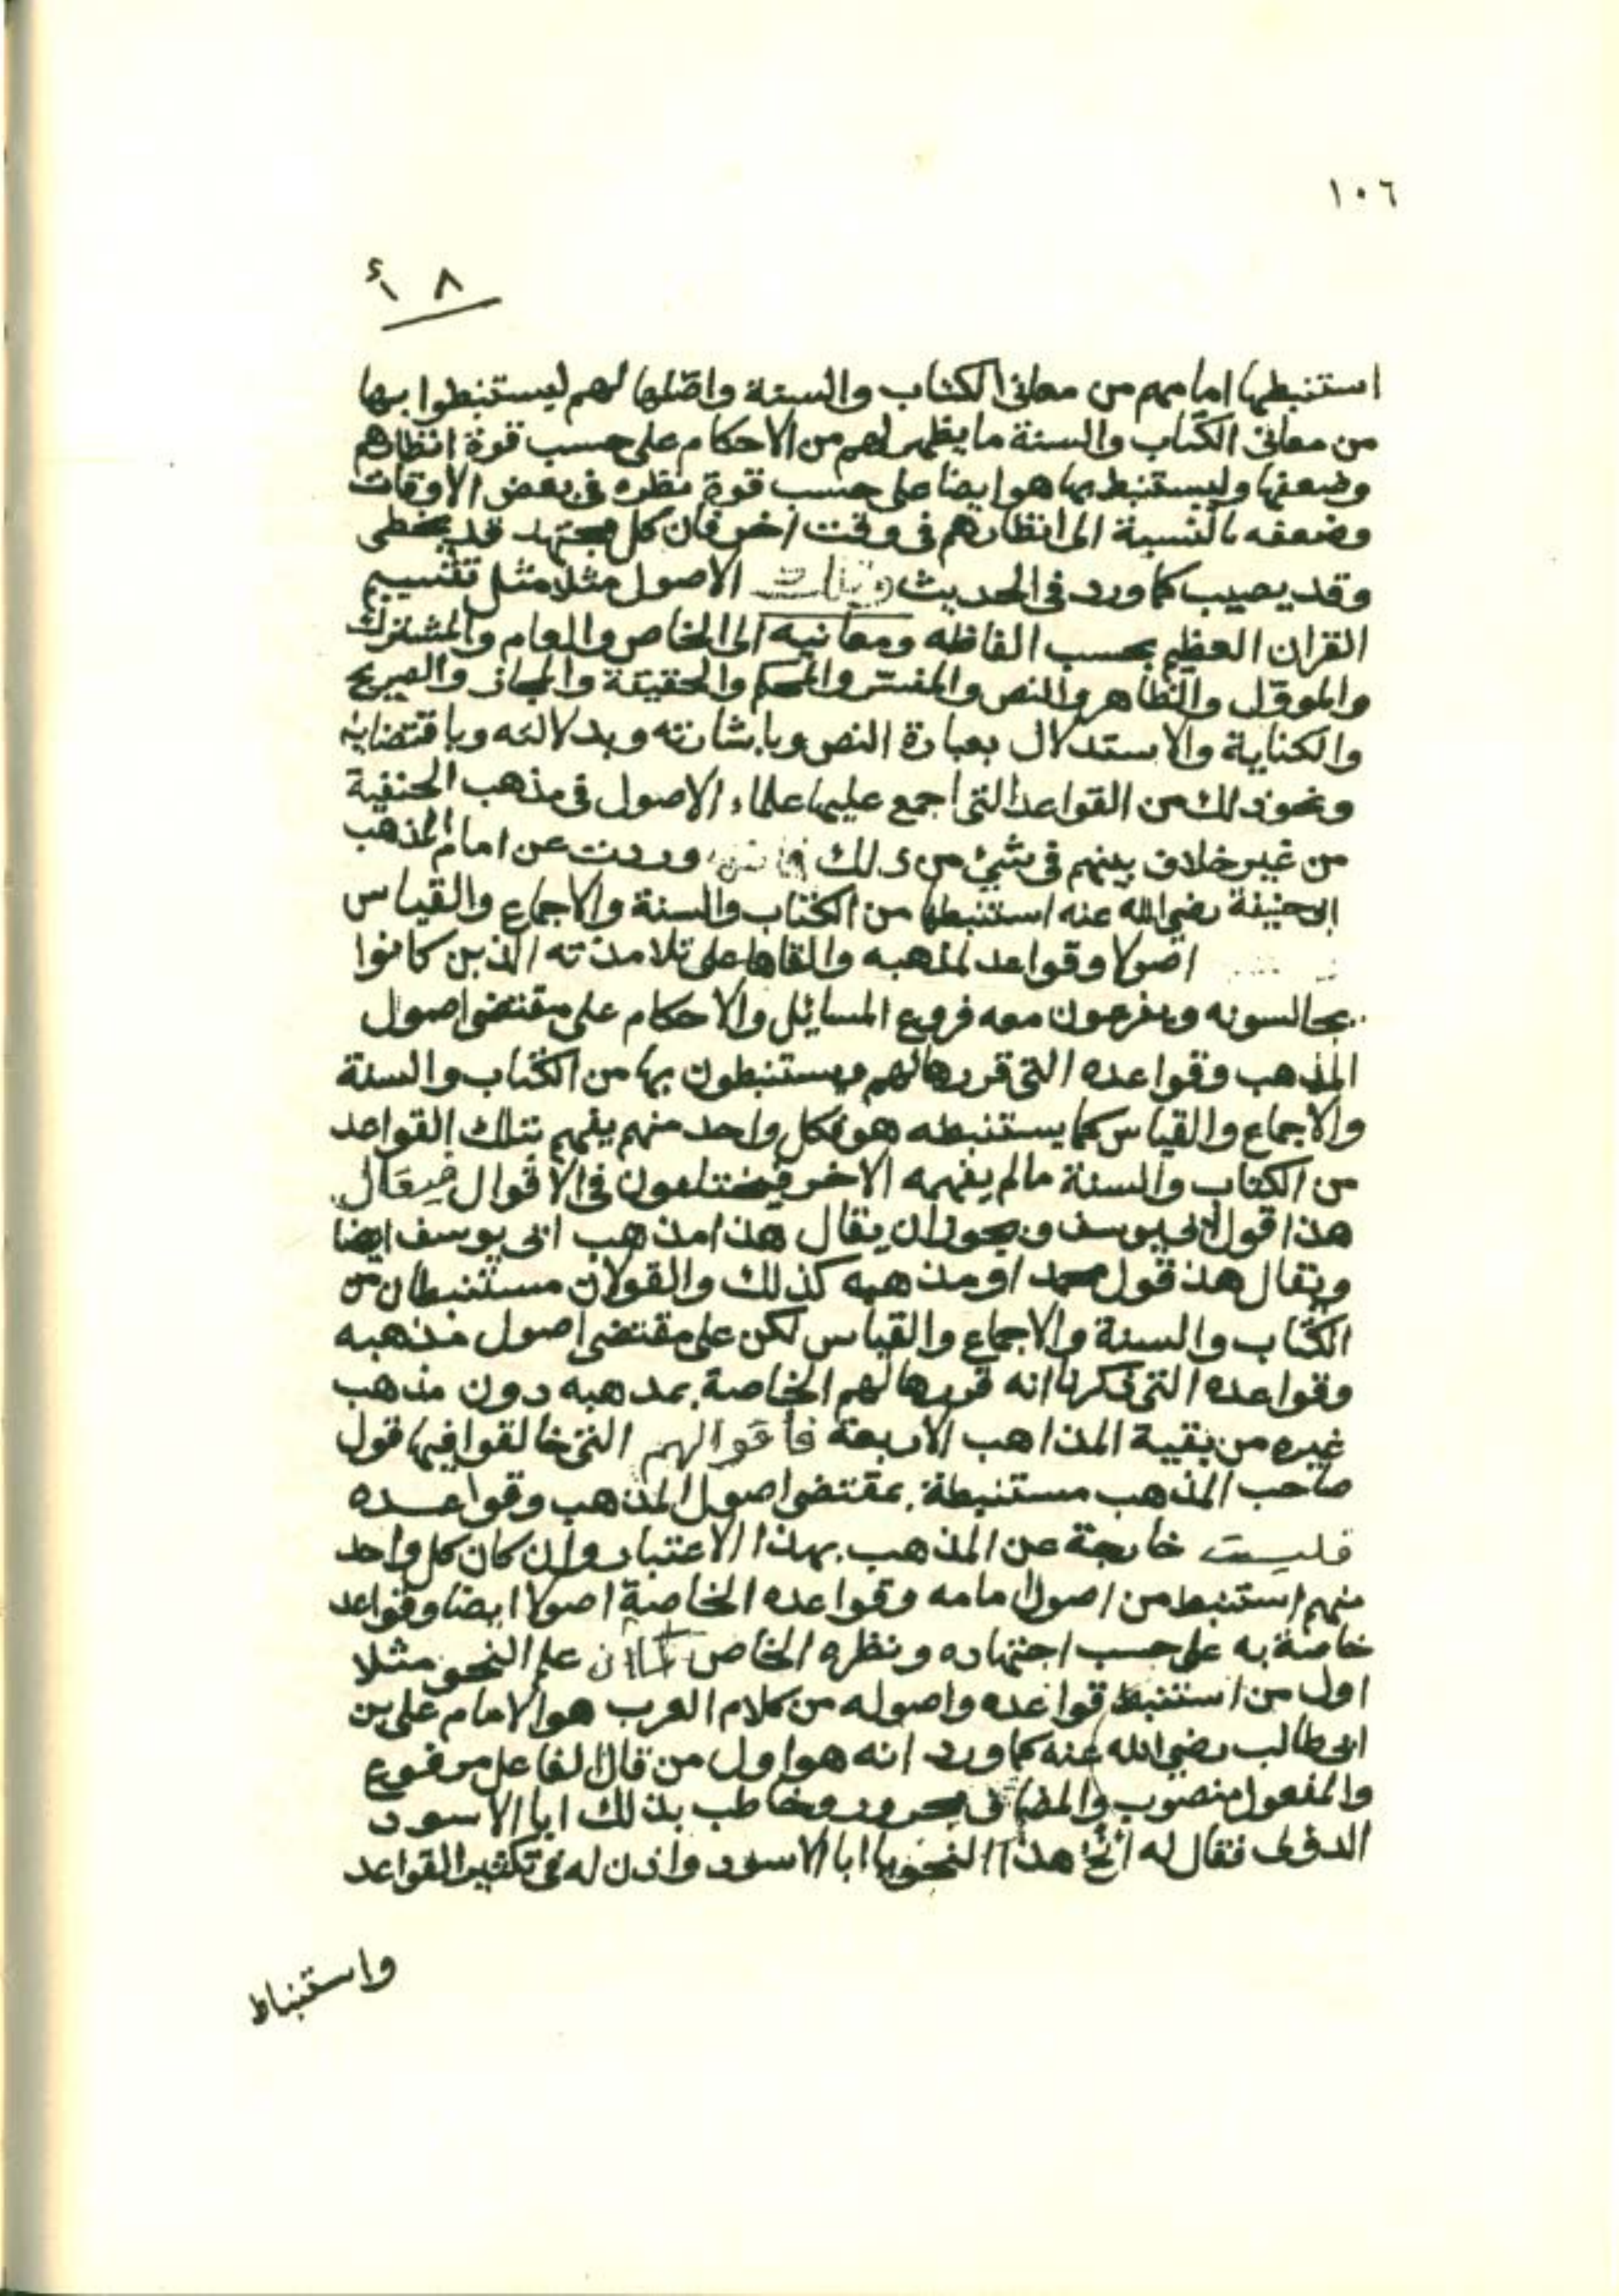 ١٠٦
٨ أ
استنبطها امامهم من معانى الكتاب والسنة واصّلها لهم ليستنبطوا بها
من معانى الكتاب والسنة ما يظهر لهم من الاحكام على حسب قوة انظارهم
وضعفها وليستنبط بها هو ايضا على حسب قوة نظره فى بعض الاوقات
وضعفه بالنسبة الى انظارهم فى وقت اخر فان كل مجتهد قد يخطى
وقد يصيب كما ورد فى الحديث وتلك الاصول مثلا مثل تقسيم
القران العظيم بحسب الفاظه ومعانيه الى الخاص والعام والمشترك
والموؤل والظاهر والنص والمفسّر والمحكم والحقيقة والمجاز والصريح
والكناية والاستدلال بعبارة النص وباشارته وبدلالته وباقتضايه
ونحوذلك من القواعد التى اجمع عليها علماء الاصول فى مذهب الحنفية
من غير خلاف بينهم فى شئ من ذلك وردت عن امام المذهب
ابى حنيفة رضى الله عنه استنبطها من الكتاب والسنة والاجماع والقياس
اصولا وقواعد لمذهبه والقاها على تلامذته الذين كانوا
يجالسونه ويفرعون معه فروع المسائل والاحكام على مقتضى اصول
المذهب وقواعده التى قررها لهم ويستنبطون بها من الكتاب والسنة
والاجماع والقياس كما يستنبطه هو فكل واحد منهم يفهم بتلك القواعد
من الكتاب والسنة مالم يفهمه الاخر فيختلفون فى الاقوال فيقال
هذا قول ابى يوسف ويجوز ان يقال هذا مذهب ابى يوسف ايضا
ويقال هذ قول محمد او مذهبه كذلك والقولان مستنبطان من
الكتاب والسنة والاجماع والقياس لكن على مقتضى اصول مذهبه
وقواعده التى ذكرنا انه قررها لهم الخاصة بمذهبه دون مذهب
غيره من بقية المذاهب الاربعة فأقوالهم التى خالفوا فيها قول
صاحب المذهب مستنبطة بمقتضى اصول المذهب وقواعده
فليست خارجة عن المذهب بهذا الاعتبار وان كان كل واحد
منهم استنبط من اصول امامه وقواعده الخاصة اصولا ايضا وقواعد
خاصة به على حسب اجتهاده ونظره الخاص كما ان علم النحو مثلا
اول من استنبط قواعده واصوله من كلام العرب هو الامام على بن
ابى طالب رضى الله عنه كما ورد انه هو اول من قال الفاعل مرفوع
والمفعول منصوب والمضاف مجرور وخاطب بذلك ابا الاسود
الدؤلى فقال له أنحُ هذا النحو يا ابا الاسود واذن له فى تكثير القواعد
واستنباط